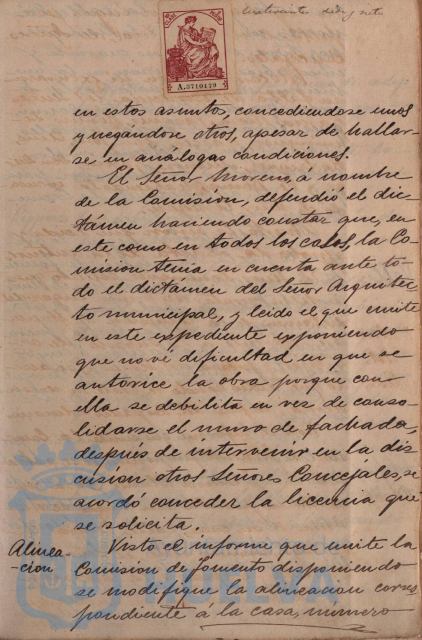 A.3710179
en estos asuntos, concediendose unos
y negandose otros, apesar de hallar-
se en análogas condiciones.
El Señor Moreno, á nombre
de la Comision, defendió el dic-
támen haciendo constar que, en
este como en todos los casos, la Co-
mision tenia en cuenta ante to-
do el dictamen del Señor Arquitec-
to municipal, y leido el que emite
en este expediente exponiendo
que no vé dificultad en que se
autorice la obra porque con
ella se debilita en vez de conso-
lidarse el muro de fachada,
después de intervenir en la dis-
cusion otros Señores Concejales, se
acordó conceder la licencia que
se solicita.
Alinea-
-cion
Visto el informe que emite la
Comision de fomento disponiendo
se modifique la alineacion corres
pondiente á la casa, número